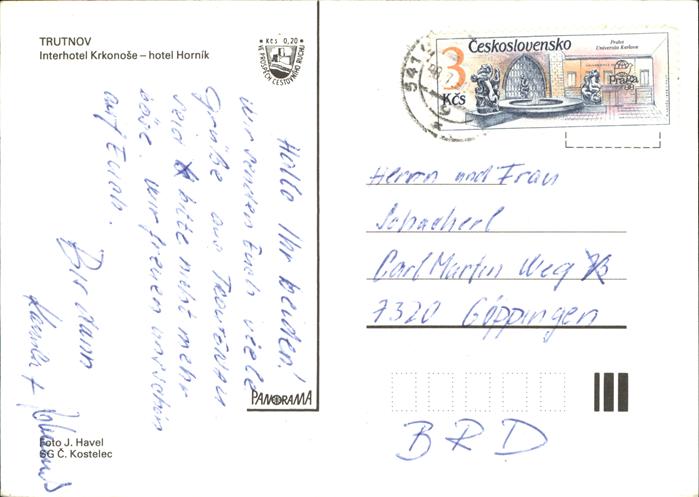 TRUTNOV
Interhotel Krkonoše – hotel Horník
Kčs 0,20
VE PROSPĚCH CESTOVNÍHO RUCHU
Hallo Ihr beiden!
Wir senden Euch viele
Grüße aus Trautenau
seid bitte nicht mehr
böse. Wir freuen uns schon
auf Euch.
Bis dann
PANORAMA
Foto J. Havel
SG Č. Kostelec
Československo
3
Kčs
Praha
Univerzita Karlova
Praga
88
541
Herrn und Frau
Schacherl
Carl Martin Weg
7320 Göppingen
BRD